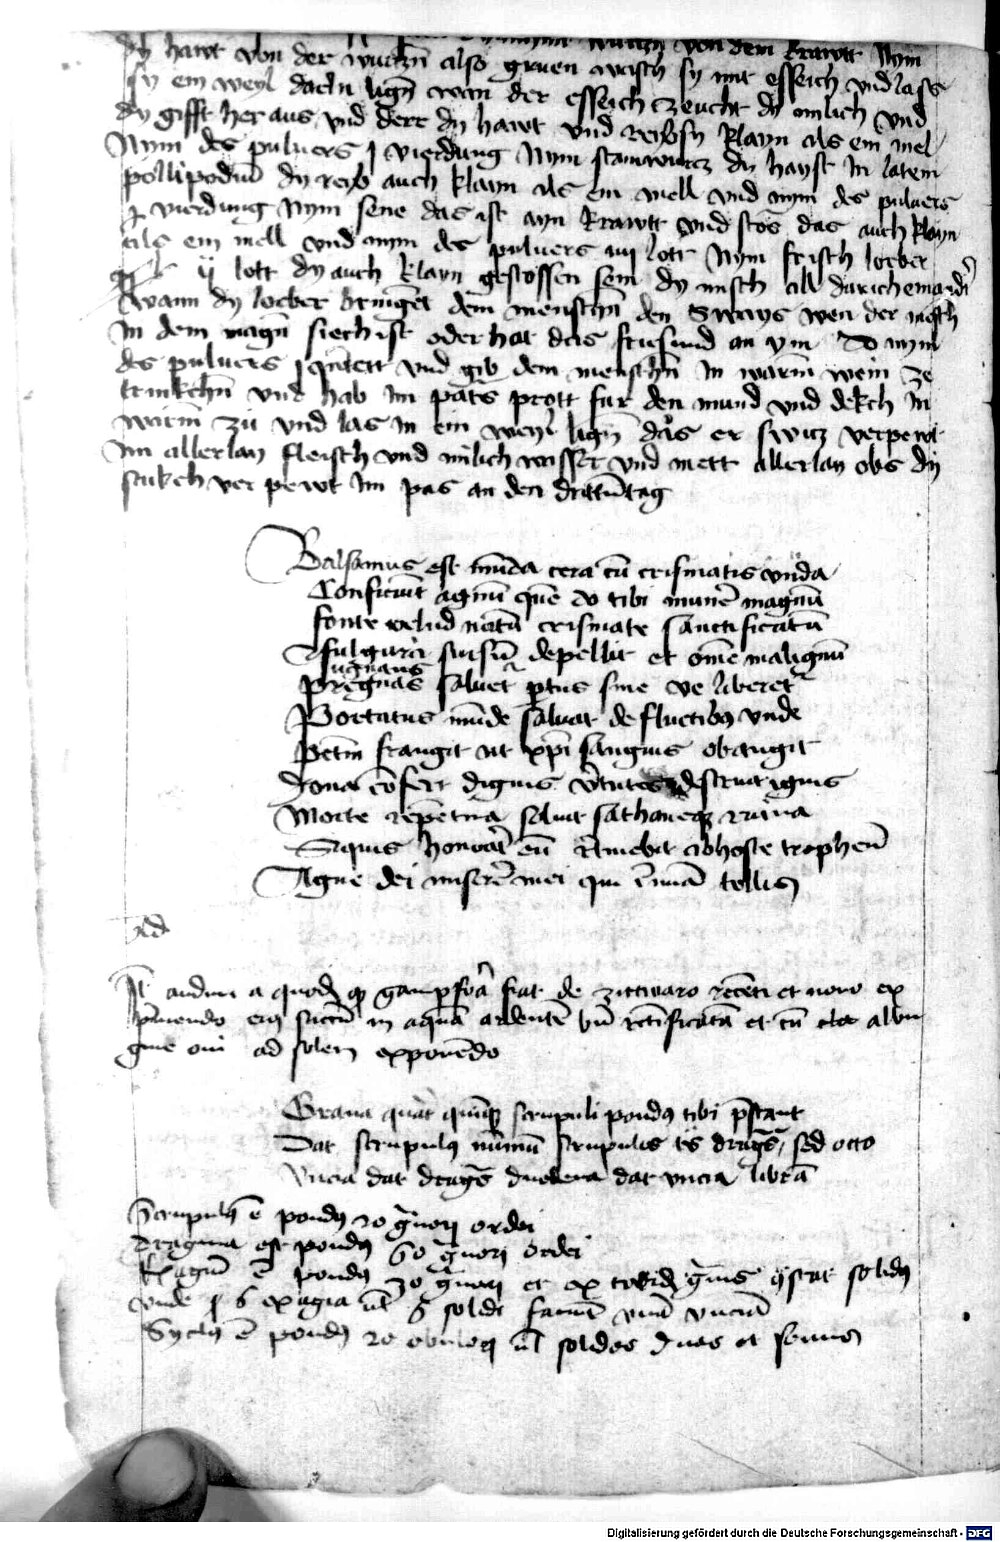 dy hawt von der wurczn also gruen wasch sy mit essich vnd lass
sy ein weyl dar In lign wan der essich zeucht dy milich vnd
dy gifft her aus vnd derr dy hawt vnd reyb sy klayn als ein mel
Nym des puluers j vierdung Nym stainwurcz dy hayst In latein
pollipodiu dy reyb auch klain als ein mell vnd nym des puluers
j vierdung Nym sene das ist ayn krawtt vnd stos das auch klayn
als ein mell vnd nym des puluers iiij lott Nym frisch lorber
ij lott dy auch klayn gestossen sein dy misch all durich einandr
wann dy lorber bringet dem menschn den sways wen der mesch
In dem magn siech ist oder hat das fiesund an ym So nym
des puluers j quntett vnd gib dem menschn In warm wein ze
trinkchn vnd hab im pats prott fur den mund vnd dekch In
warm zu vnd las In ein weyl lign das er switz verpewt
im allerlay fleisch vnd milich wasser vnd mett allerlay obs dy
stukch verpewt im pas an den dritten tag
Balsamus est munda cera cu crismatis vnda
Conficiut agnu que do tibi munere magnu
fonte velud natu crismate sanctificatu
fulgura sursu depellit et ome malignu
pregnas saluet ptus sine ve liberetr
Portatus munde saluat de fluctibus vnde
Petm frangit ut xpi sanguis et angit
Dona cofert dignis vtutes destruit ignis
Morte repetina saluat sathaneqz ruina
Siquis honorat eu retinebit ab hoste tropheu
Agne dei miserere mei qui crimina tollis
Ad
It audiui a quoda qz gampfora fiat de zittwaro recenti et nouo ex
pmendo eius succu in aqua ardente bn rectificata et cu albu
gine oui ad solem exponendo
Grana quat quinqz scrupuli pondus tibi pstant
Dat scrupulus nummu scrupulus tres dragma sed octo
Vncia dat dragma duodena dat vncia libra
Scrupulus e pondus 20 granorum ordei
Dragma est pondus 60 granorum ordei
Exagiu e pondus 90 granorum et ex totidem granis constat solidus
vnde 6 exagia ul 6 solidi faciut vna vnciam
Syclus e pondus 20 obulorum ul solidos duos et semis
Digitalisierung gefördert durch die Deutsche Forschungsgemeinschaft - DFG